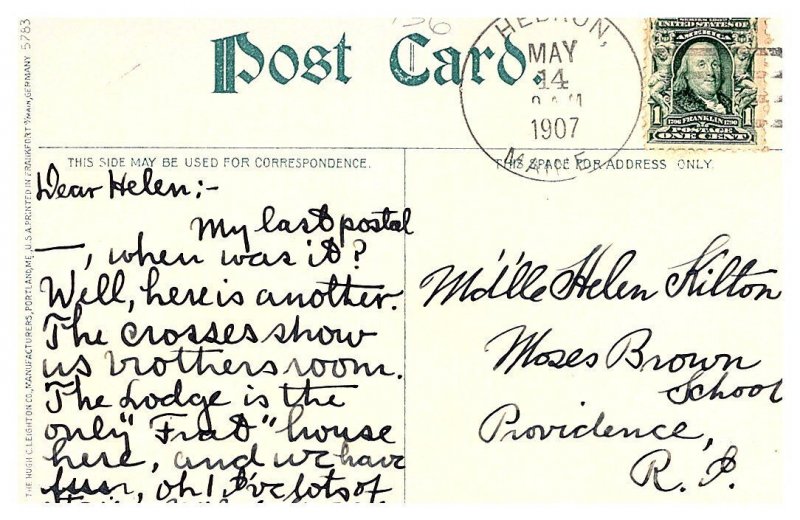 5783
136
Post Card.
HEBRON,
MAY
14
1907
MAINE
SERIES 1902
AMERICA
1 1706 FRANKLIN 1790 1
POSTAGE
ONE CENT
THIS SIDE MAY BE USED FOR CORRESPONDENCE.
THIS SPACE FOR ADDRESS ONLY.
THE HUGH C. LEIGHTON CO., MANUFACTURERS, PORTLAND, ME., U.S.A. PRINTED IN FRANKFORT O/MAIN, GERMANY
Dear Helen:-
My last postal
—, when was it?
Well, here is another.
The crosses show
us brothers room.
The Lodge is the
only "Frat" house
here, and we have
fun, oh! I've lots of
M'dlle Helen Kilton
Moses Brown
School
Providence,
R. I.